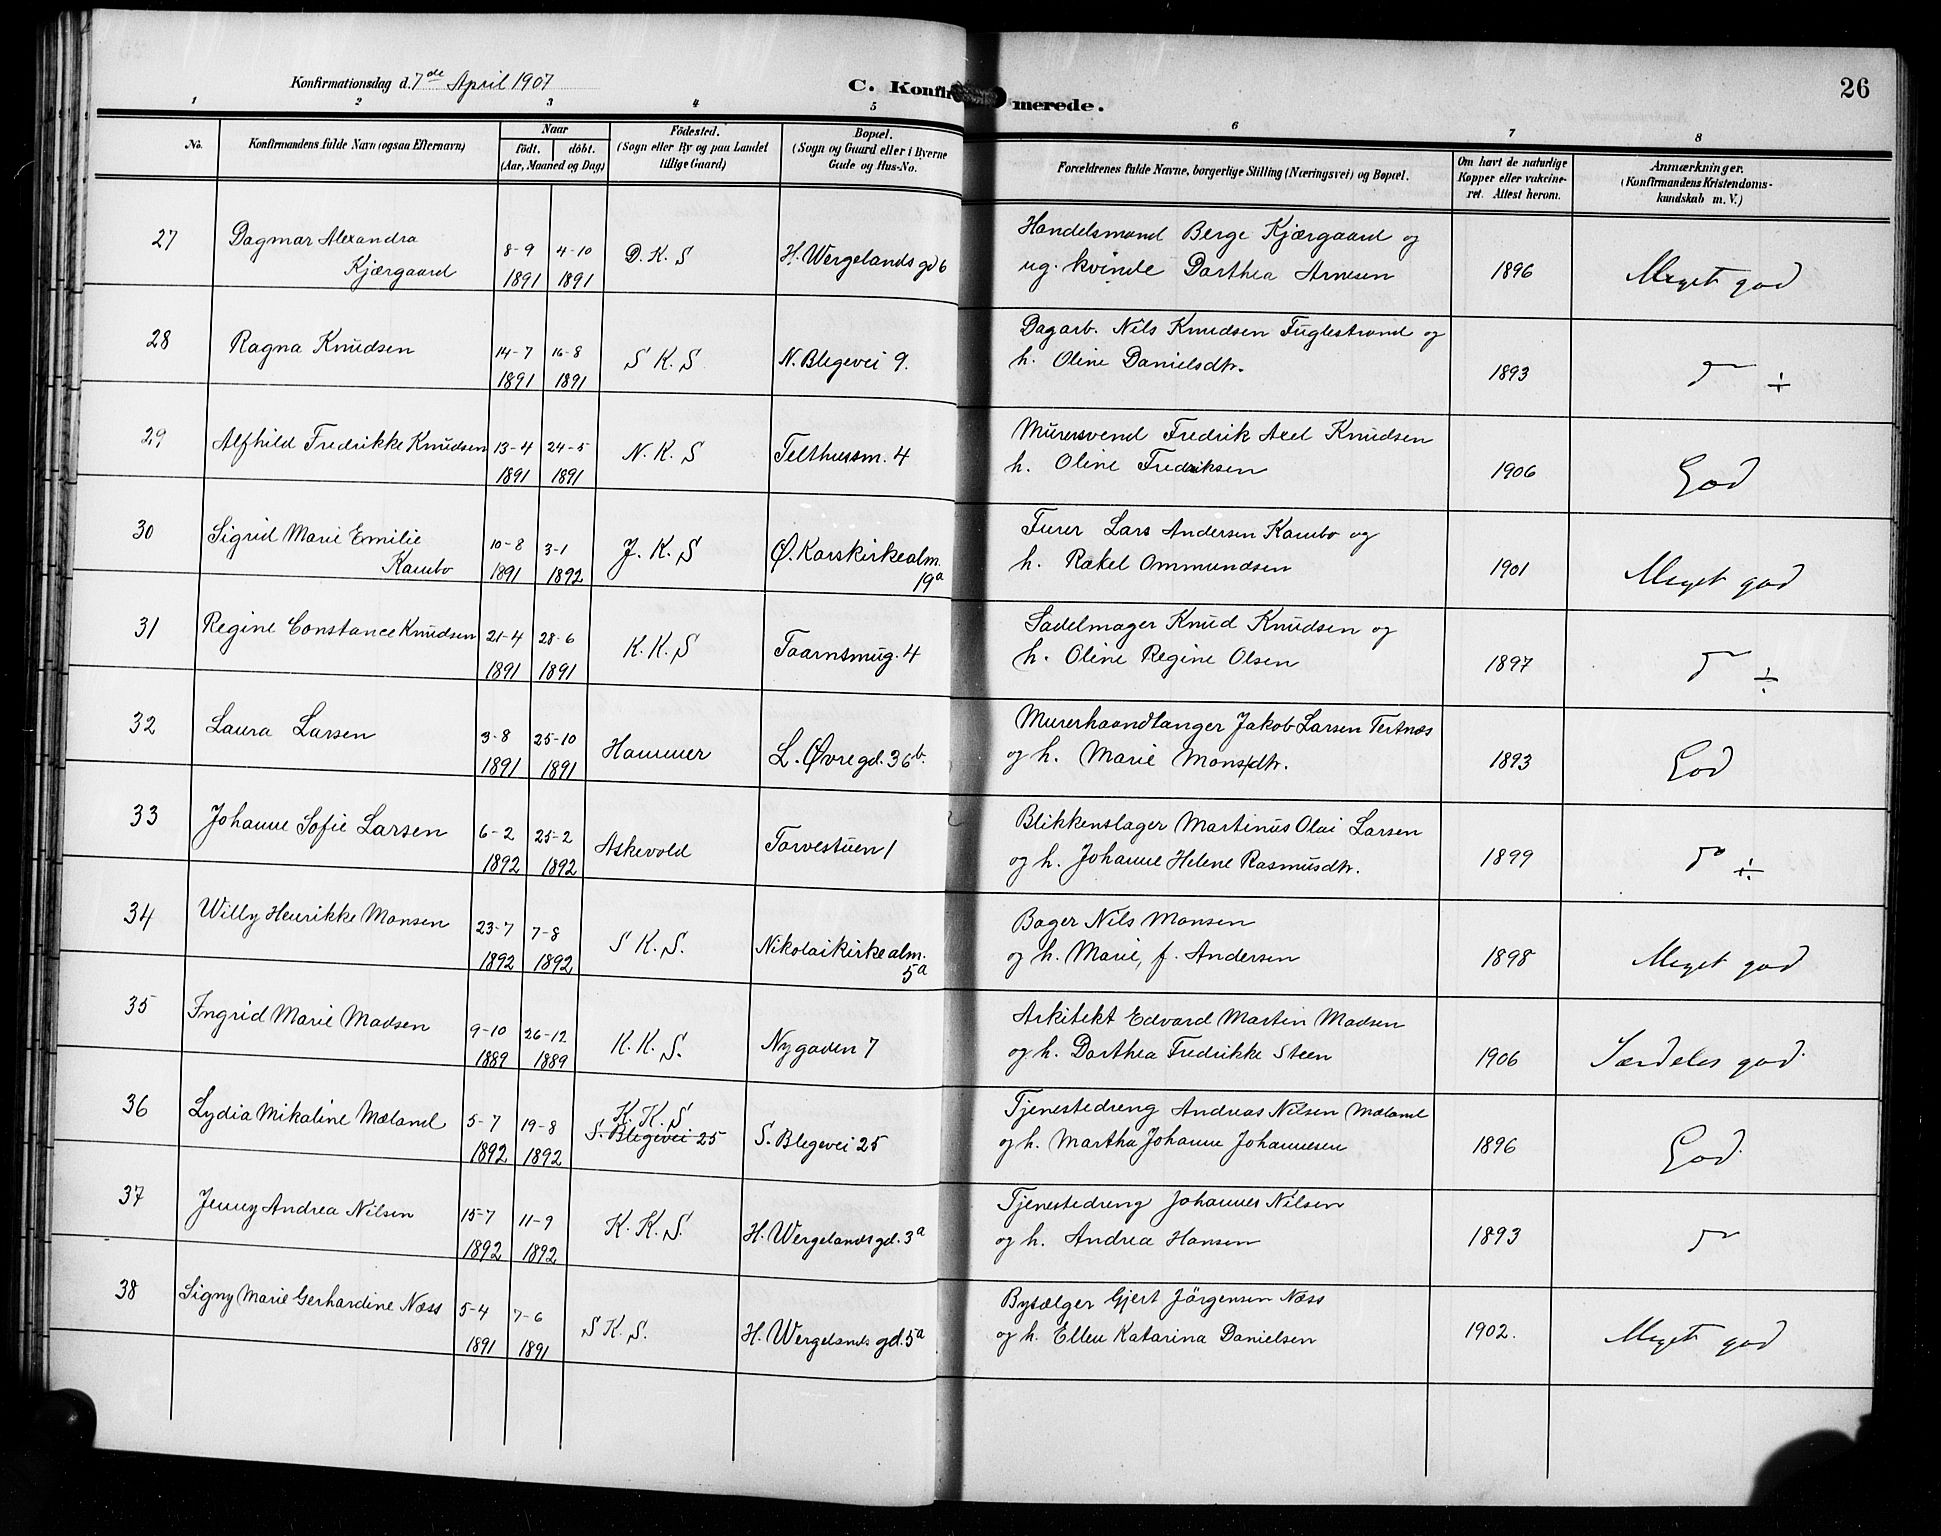 Konfirmationsdag d. 7de April 1907
C. Konfirmerede.
26
1 2 3 4 5 6 7 8
No.
Konfirmandens fulde Navn (ogsaa Efternavn)
Naar
födt. döbt.
(Aar, Maaned og Dag)
Födested.
(Sogn eller By og paa Landet
tillige Gaard)
Bopæl.
(Sogn og Gaard eller i Byerne
Gade og Hus-No.
Forældrenes fulde Navne, borgerlige Stilling (Næringsvei) og Bopæl.
Om havt de naturlige
Kopper eller vakcine-
ret. Attest herom.
Anmærkninger.
(Konfirmandens Kristendoms-
kundskab m. V.)
27 Dagmar Alexandra 8-9 4-10 D. K. S H. Wergelands gd 6 Handelsmand Berge Kjærgaard og
Kjærgaard 1891 1891 ug. kvinde Dorthea Arnesen 1896 Meget god
28 Ragna Knudsen 14-7 16-8 S K. S N. Blegevei 9. Dagarb. Nils Knudsen Fuglestrand og
1891 1891 h. Oline Danielsdtr. 1893 do ÷
29 Alfhild Fredrikke Knudsen 13-4 24-5 N. K. S Telthussm. 4 Murersvend Fredrik Axel Knudsen
1891 1891 h. Oline Fredriksen 1906 God
30 Sigrid Marie Emilie 10-8 3-1 J. K. S Ø. Korskirkealm. Furer Lars Andersen Kambo og
Kambo 1891 1892 19a h. Rakel Ommundsen 1901 Meget god
31 Regine Constance Knudsen 21-4 28-6 K. K. S Taarnsmug. 4 Sadelmager Knud Knudsen og
1891 1891 h. Oline Regine Olsen 1897 do ÷
32 Laura Larsen 3-8 25-10 Hammer L. Øvregd. 36b. Murerhaandlanger Jakob Larsen Tertnæs
1891 1891 og h. Marie Monsdtr. 1893 God
33 Johanne Sofie Larsen 6-2 25-2 Askevold Torvestuen 1 Blikkenslager Martinus Olai Larsen
1892 1892 og h. Johanne Helene Rasmusdtr. 1899 do ÷
34 Willy Henrikke Monsen 23-7 7-8 S K. S. Nikolaikirkealm. Bager Nils Monsen
1892 1892 5a og h. Marie, f. Andersen 1898 Meget god
35 Ingrid Marie Madsen 9-10 26-12 K. K. S. Nygaden 7 Arkitekt Edvard Martin Madsen
1889 1889 og h. Dorthea Fredrikke Steen 1906 Særdeles god.
36 Lydia Mikaline Mæland 5-7 19-8 K. K. S Tjenestedreng Andreas Nilsen Mæland
1892 1892 S. Blegevei 25 S. Blegevei 25 og h. Martha Johanne Johannesen 1896 God.
37 Jenny Andrea Nilsen 15-7 11-9 K. K. S. H. Wergelandsgd. 3a Tjenestedreng Johannes Nilsen
1892 1892 og h. Andrea Hansen 1893 do
38 Signy Marie Gerhardine Næss 5-4 7-6 S K. S. H. Wergelands gd. 5a Bysælger Gjert Jörgensen Næss
1891 1891 og h. Ellen Katarina Danielsen 1902. Meget god